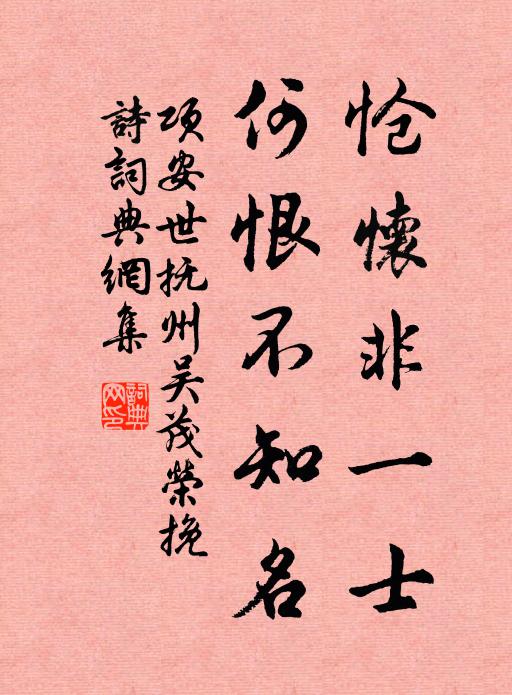 怆懷非一士
何恨不知名
項安世抚州吴茂榮挽
詩詞典網集
詞典网印